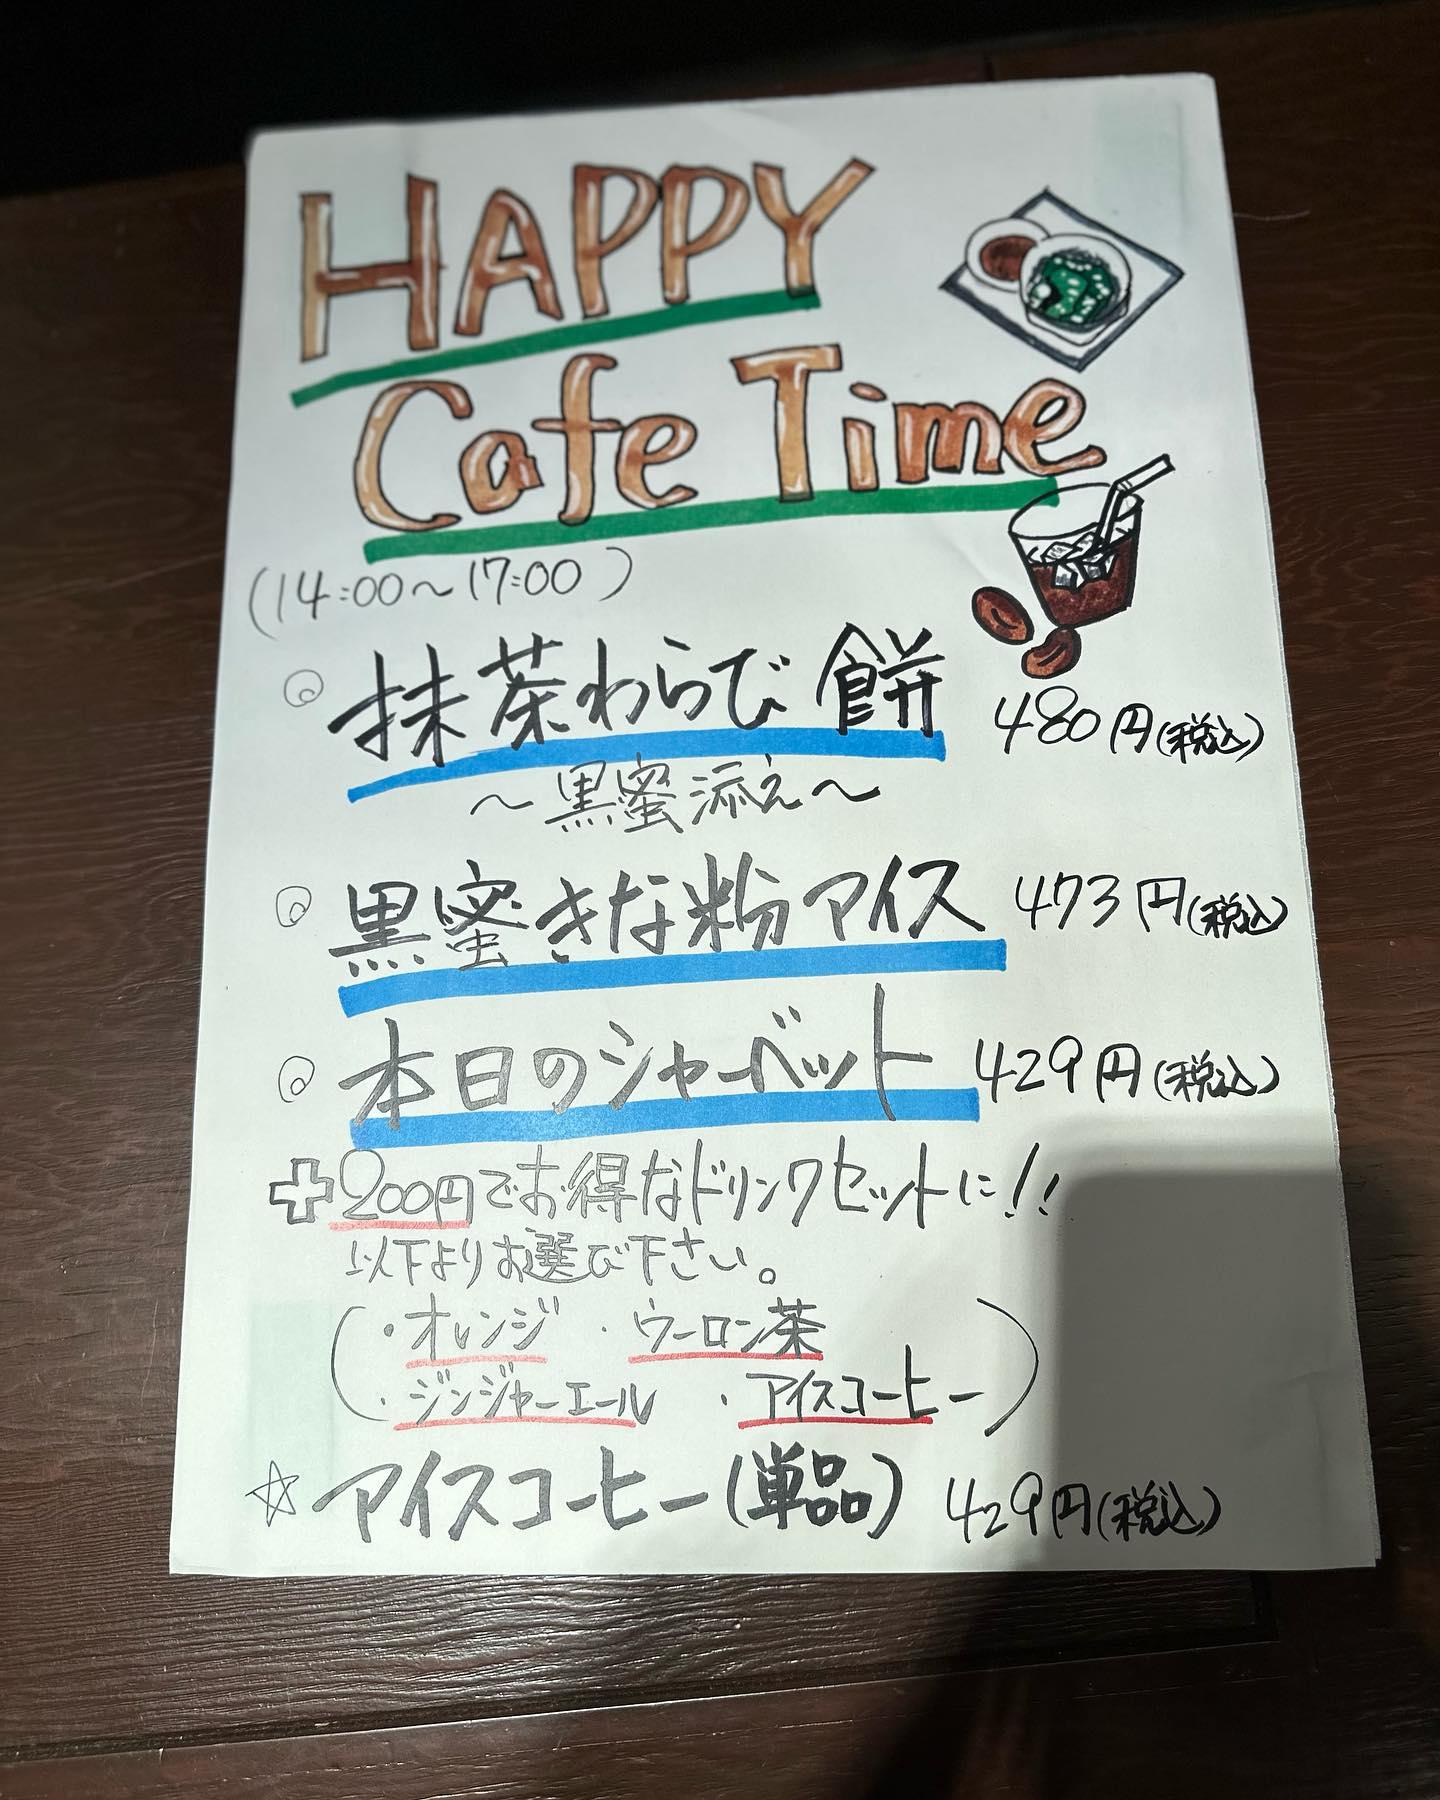 HAPPY
Cafe Time
(14:00〜17:00)
◎ 抹茶わらび餅 480円(税込)
〜黒蜜添え〜
◎ 黒蜜きな粉アイス 473円(税込)
◎ 本日のシャーベット 429円(税込)
＋200円でお得なドリンクセットに!!
以下よりお選び下さい。
(・オレンジ ・ウーロン茶
・ジンジャーエール ・アイスコーヒー)
☆ アイスコーヒー(単品) 429円(税込)